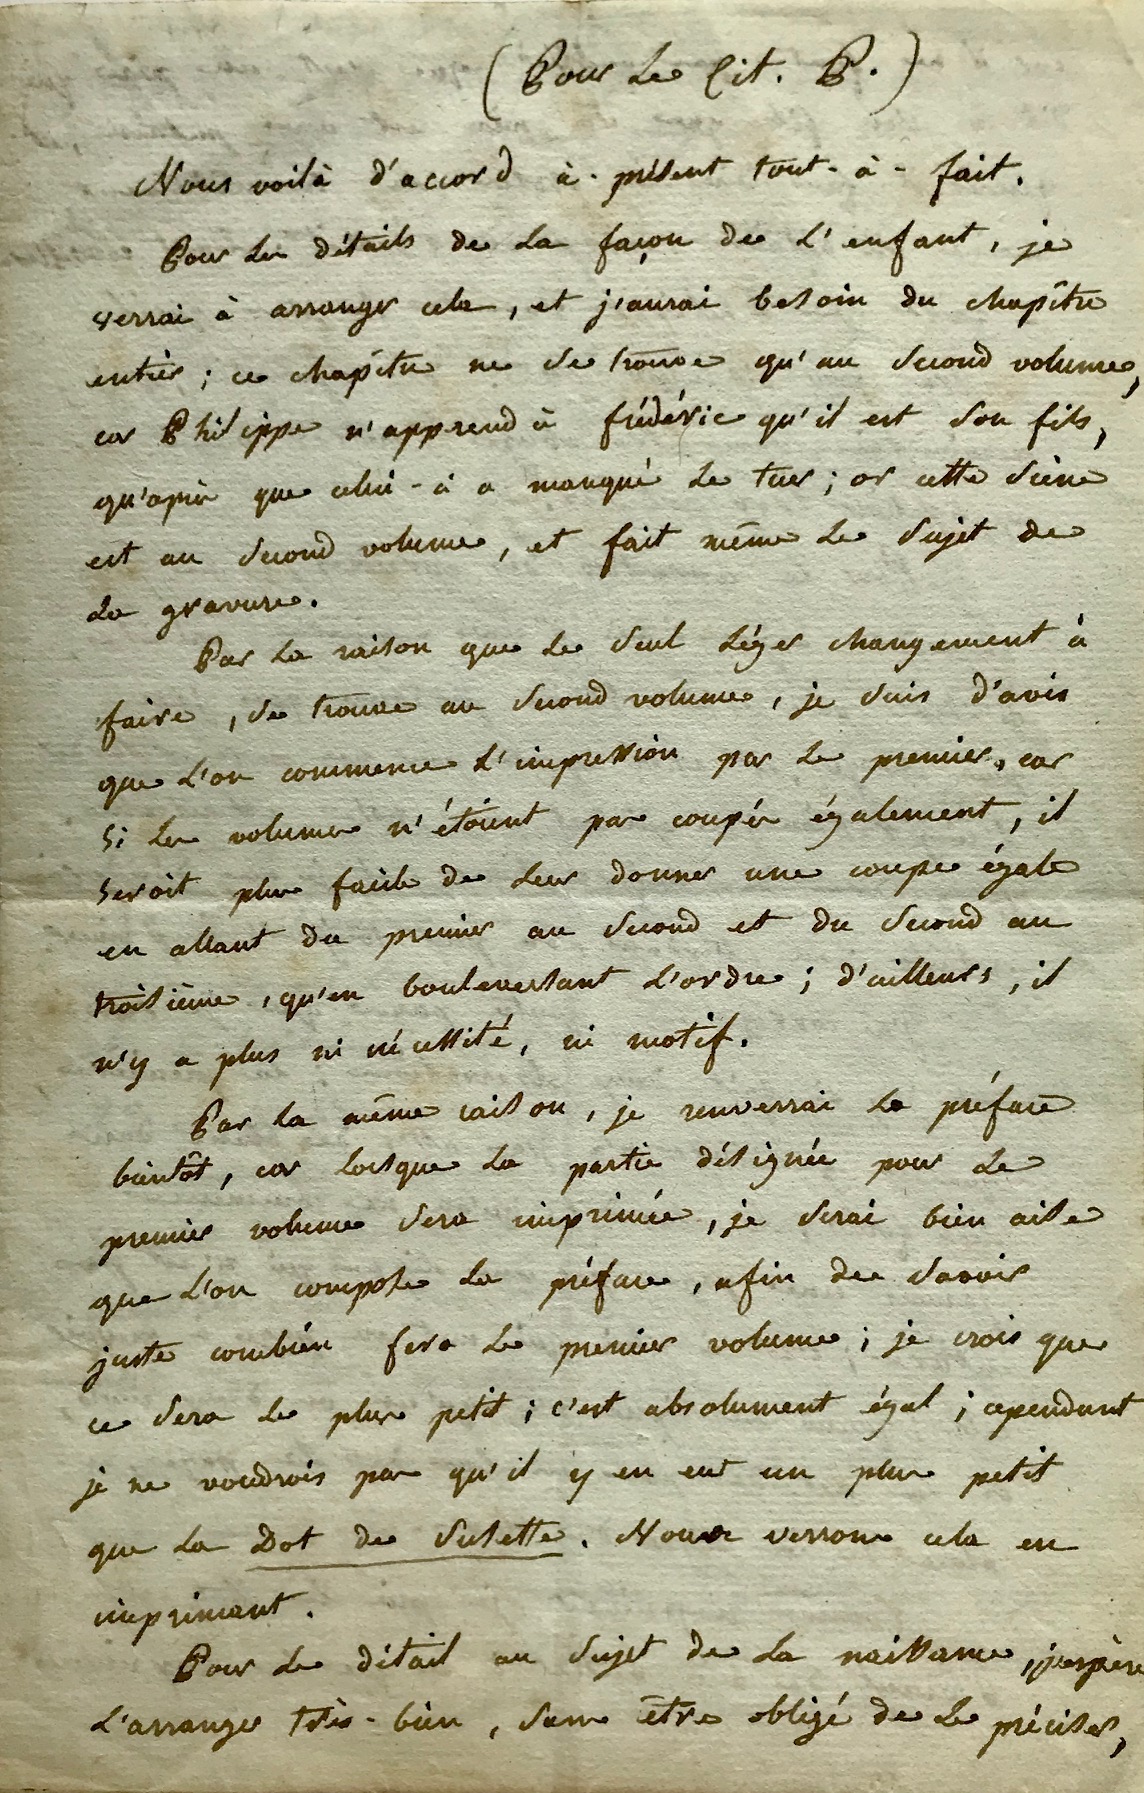 (Pour le Cit. P.)
Nous voilà d'accord à-présent tout-à-fait.
Pour les détails de la façon de l'enfant, je
verrai à arranger cela, et j'aurai besoin du chapître
entier; ce chapître ne se trouve qu'au second volume,
car Philippe n'apprend à frédéric qu'il est son fils,
qu'après que celui-ci a manqué le tuer; or cette scène
est au second volume, et fait même le sujet de
la gravure.
Par la raison que le seul léger changement à
faire, se trouve au second volume, je suis d'avis
que l'on commence l'impression par le premier, car
si les volumes n'étoient pas coupés également, il
seroit plus facile de leur donner une coupe égale
en allant du premier au second et du second au
troisième, qu'en bouleversant l'ordre; d'ailleurs, il
n'y a plus ni nécessité, ni motif.
Par la même raison, je renverrai la préface
bientôt, car lorsque la partie désignée pour le
premier volume sera imprimée, je serai bien aise
que l'on compose la préface, afin de savoir
juste combien fera le premier volume; je crois que
ce sera le plus petit; c'est absolument égal; cependant
je ne voudrois pas qu'il y en eut un plus petit
que la Dot de Susette. Nous verrons cela en
imprimant.
Pour le détail au sujet de la naissance, j'espère
l'arranger très-bien, sans être obligé de le préciser,